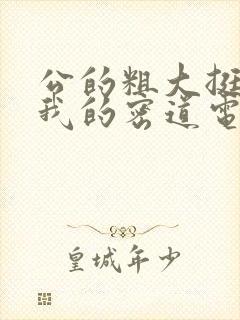 公的粗大挺
我的密道电
皇城年少